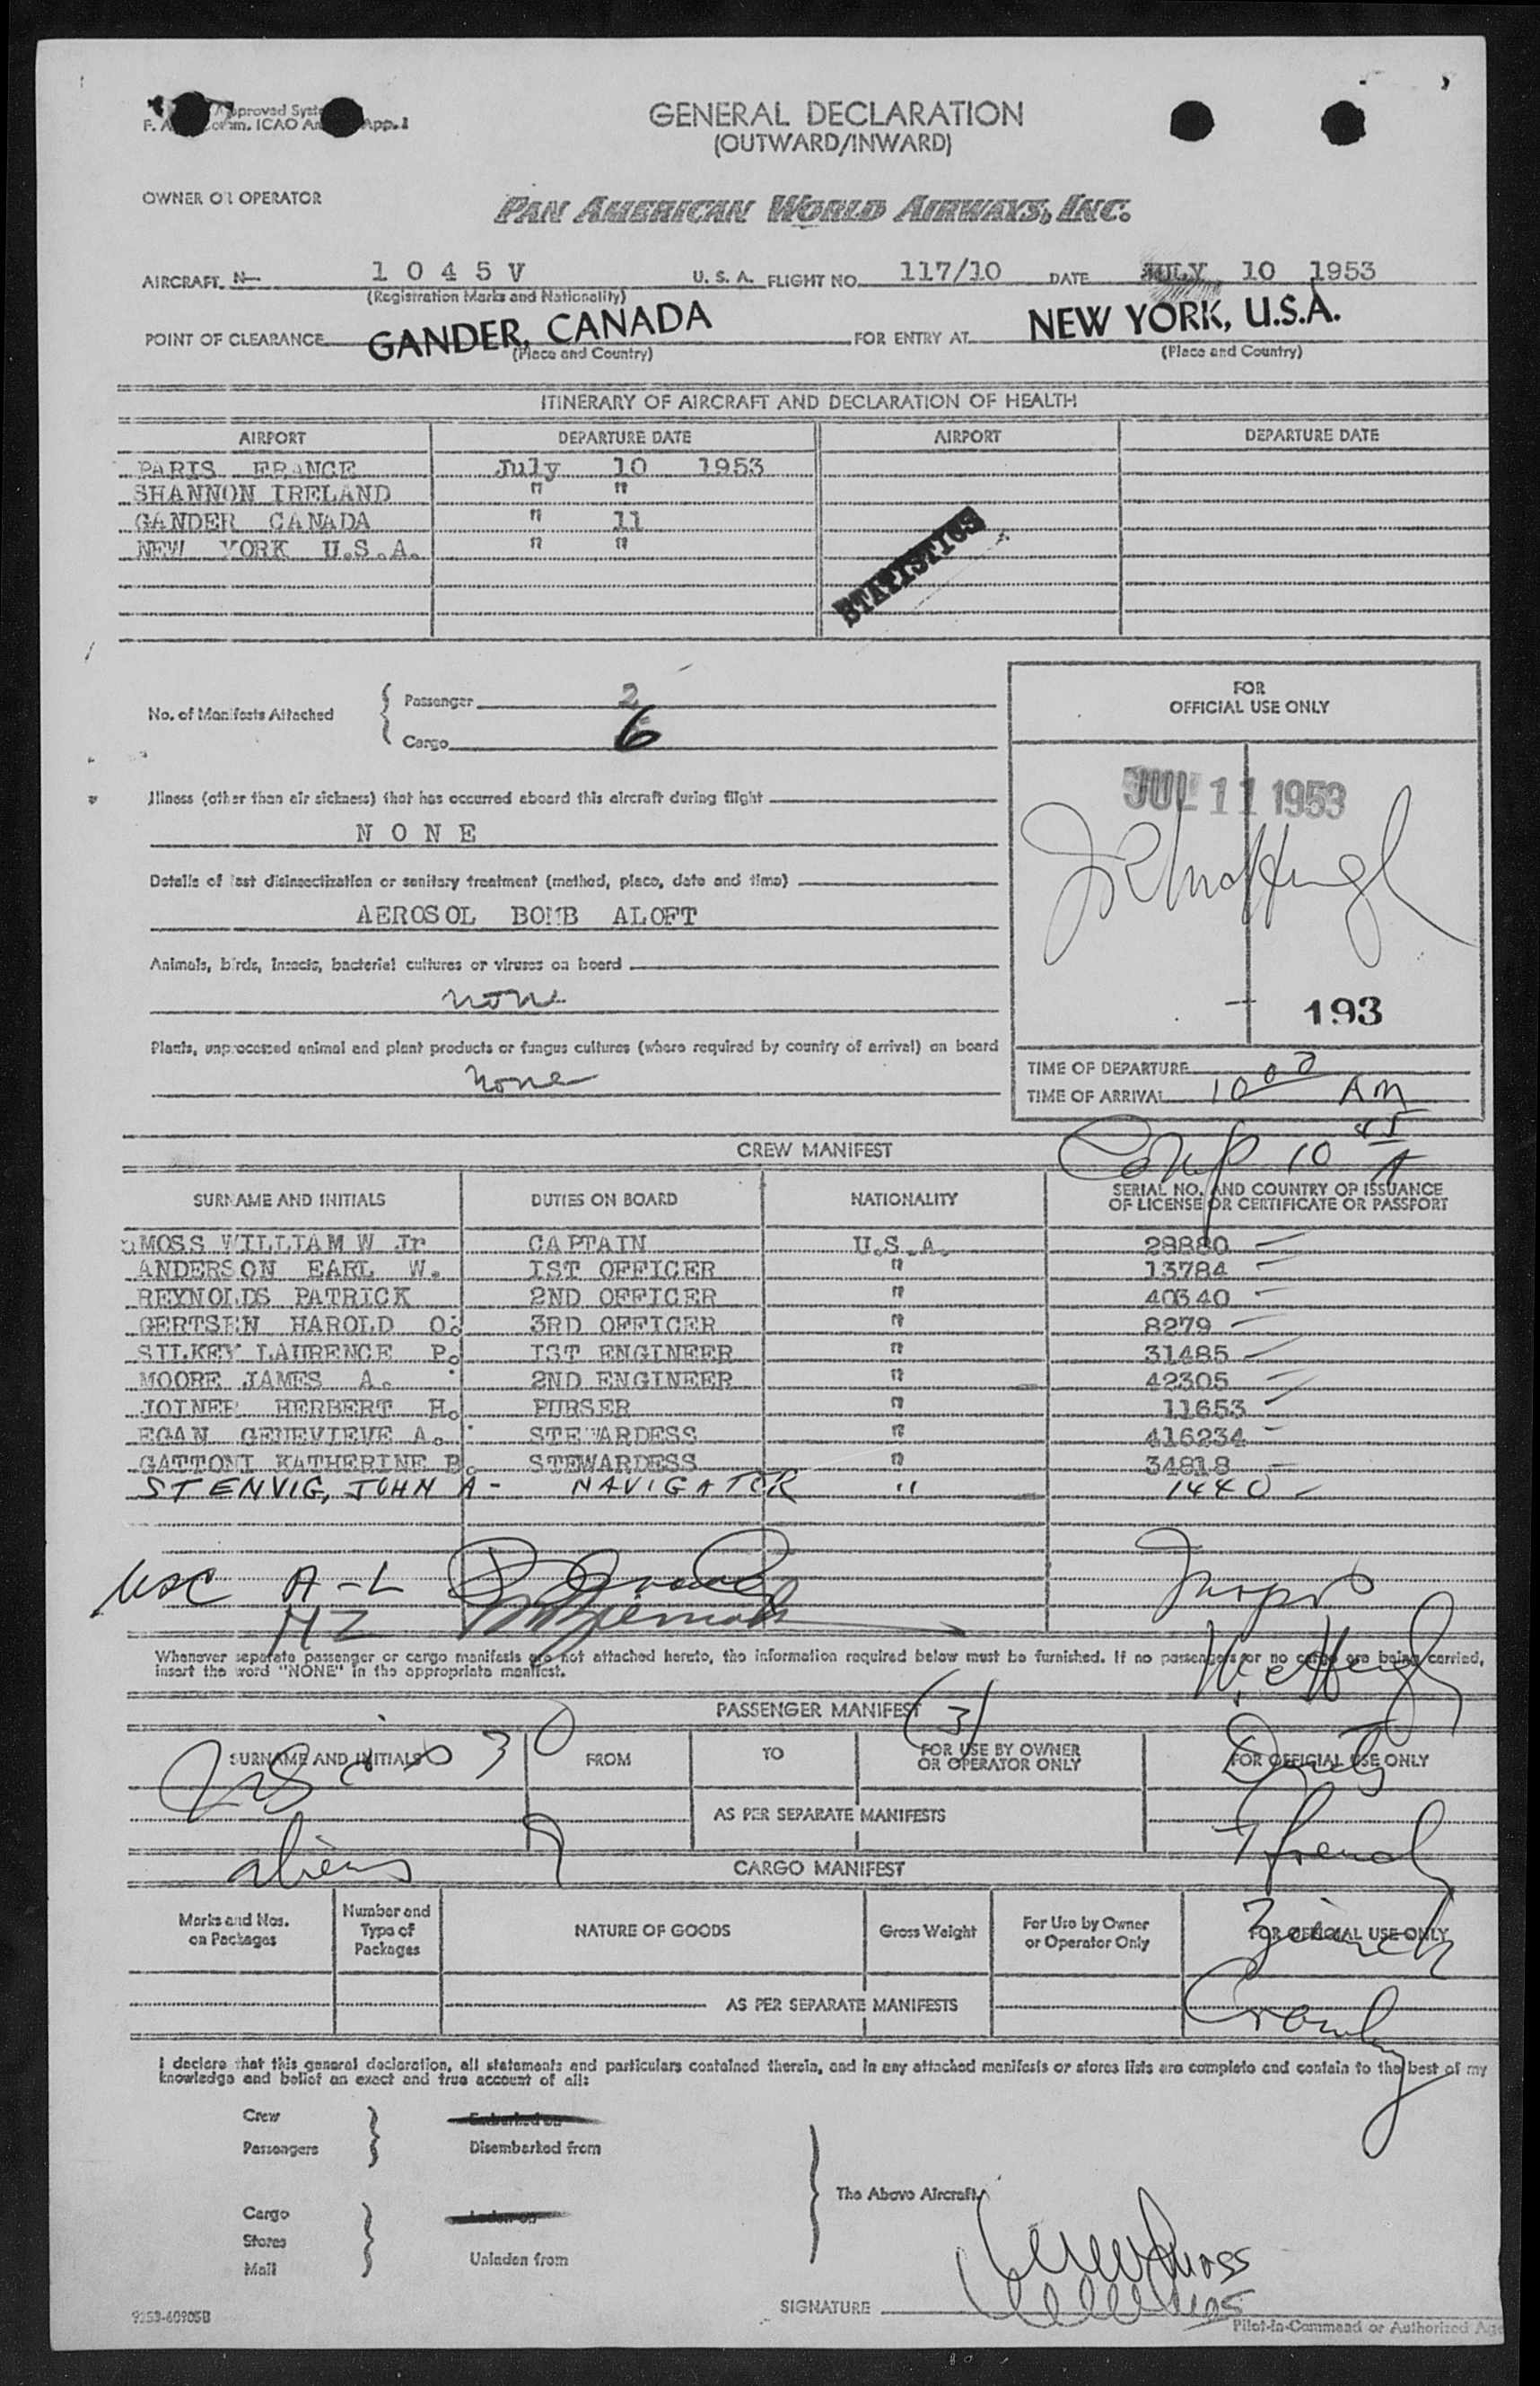 Approved
ICAO
App. 1
GENERAL DECLARATION
(OUTWARD/INWARD)
OWNER OR OPERATOR
PAN AMERICAN WORLD AIRWAYS, INC.
AIRCRAFT N- 1045V U. S. A. FLIGHT NO. 117/10 DATE JULY 10 1953
(Registration Marks and Nationality)
POINT OF CLEARANCE GANDER, CANADA FOR ENTRY AT NEW YORK, U.S.A.
(Place and Country) (Place and Country)
ITINERARY OF AIRCRAFT AND DECLARATION OF HEALTH
AIRPORT DEPARTURE DATE AIRPORT DEPARTURE DATE
PARIS FRANCE July 10 1953
SHANNON IRELAND " "
GANDER CANADA " 11
NEW YORK U.S.A. " "
STATISTICS
No. of Manifests Attached { Passenger 2
Cargo 6
FOR
OFFICIAL USE ONLY
JUL 11 1953
193
Illness (other than air sickness) that has occurred aboard this aircraft during flight
NONE
Details of last disinsectization or sanitary treatment (method, place, date and time)
AEROSOL BOMB ALOFT
Animals, birds, insects, bacterial cultures or viruses on board
none
Plants, unprocessed animal and plant products or fungus cultures (where required by country of arrival) on board
none
TIME OF DEPARTURE
TIME OF ARRIVAL 10 00 AM
Comp 10 45 A
CREW MANIFEST
SURNAME AND INITIALS DUTIES ON BOARD NATIONALITY SERIAL NO. AND COUNTRY OF ISSUANCE
OF LICENSE OR CERTIFICATE OR PASSPORT
MOSS WILLIAM W Jr CAPTAIN U.S.A. 28880
ANDERSON EARL W. IST OFFICER " 13784
REYNOLDS PATRICK 2ND OFFICER " 40340
GERTSEN HAROLD O. 3RD OFFICER " 8279
SILKEY LAURENCE P. IST ENGINEER " 31485
MOORE JAMES A. 2ND ENGINEER " 42305
JOINER HERBERT H. PURSER " 11653
EGAN GENEVIEVE A. STEWARDESS " 416234
GATTONI KATHERINE B. STEWARDESS " 34818
STENVIG, JOHN A- NAVIGATOR " 1440
A-L
MZ
Whenever separate passenger or cargo manifests are not attached hereto, the information required below must be furnished. If no passengers or no cargo are being carried,
insert the word "NONE" in the appropriate manifest.
PASSENGER MANIFEST
SURNAME AND INITIALS FROM TO FOR USE BY OWNER
OR OPERATOR ONLY
FOR OFFICIAL USE ONLY
AS PER SEPARATE MANIFESTS
aliens 9
CARGO MANIFEST
Marks and Nos.
on Packages
Number and
Type of
Packages
NATURE OF GOODS
Gross Weight
For Use by Owner
or Operator Only
FOR OFFICIAL USE ONLY
AS PER SEPARATE MANIFESTS
I declare that this general declaration, all statements and particulars contained therein, and in any attached manifests or stores lists are complete and contain to the best of my
knowledge and belief an exact and true account of all:
Crew
Passengers
Embarked on
Disembarked from
The Above Aircraft
Cargo
Stores
Mail
Laden on
Unladen from
SIGNATURE
Pilot-in-Command or Authorized
9253-60905B